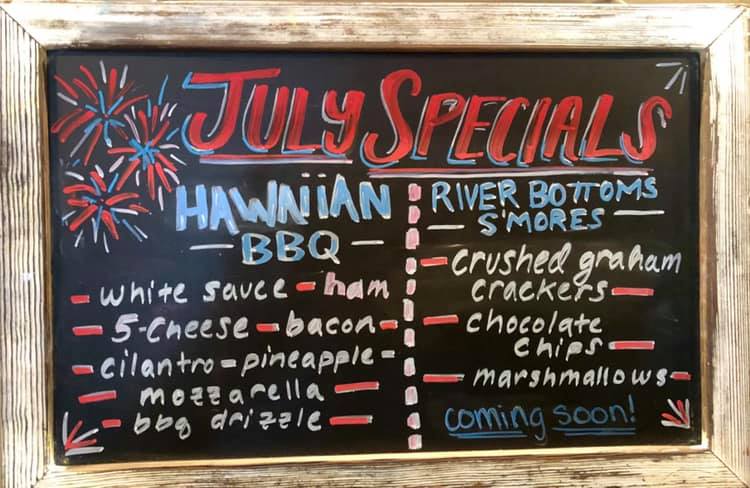 JULY SPECIALS
HAWAIIAN
- BBQ -
- white sauce - ham
- 5-cheese - bacon -
- cilantro - pineapple -
- mozzarella -
- bbq drizzle -
RIVER BOTTOMS
- S'MORES -
- crushed graham
crackers -
- chocolate
chips -
- marshmallows -
coming soon!